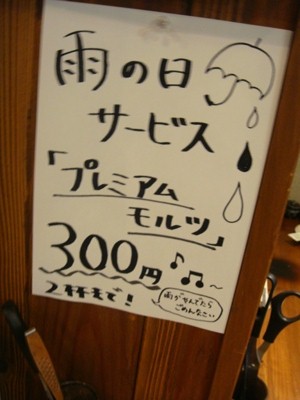 雨の日
サービス
「プレミアム
モルツ」
300円♪♫～
2杯まで!
雨がやんでたら
ごめんなさい